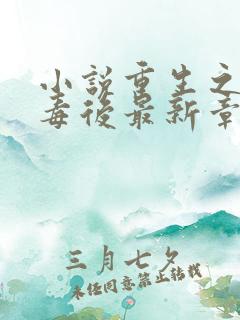 小说重生之
毒後最新章
三月七夕
未经同意禁止转载